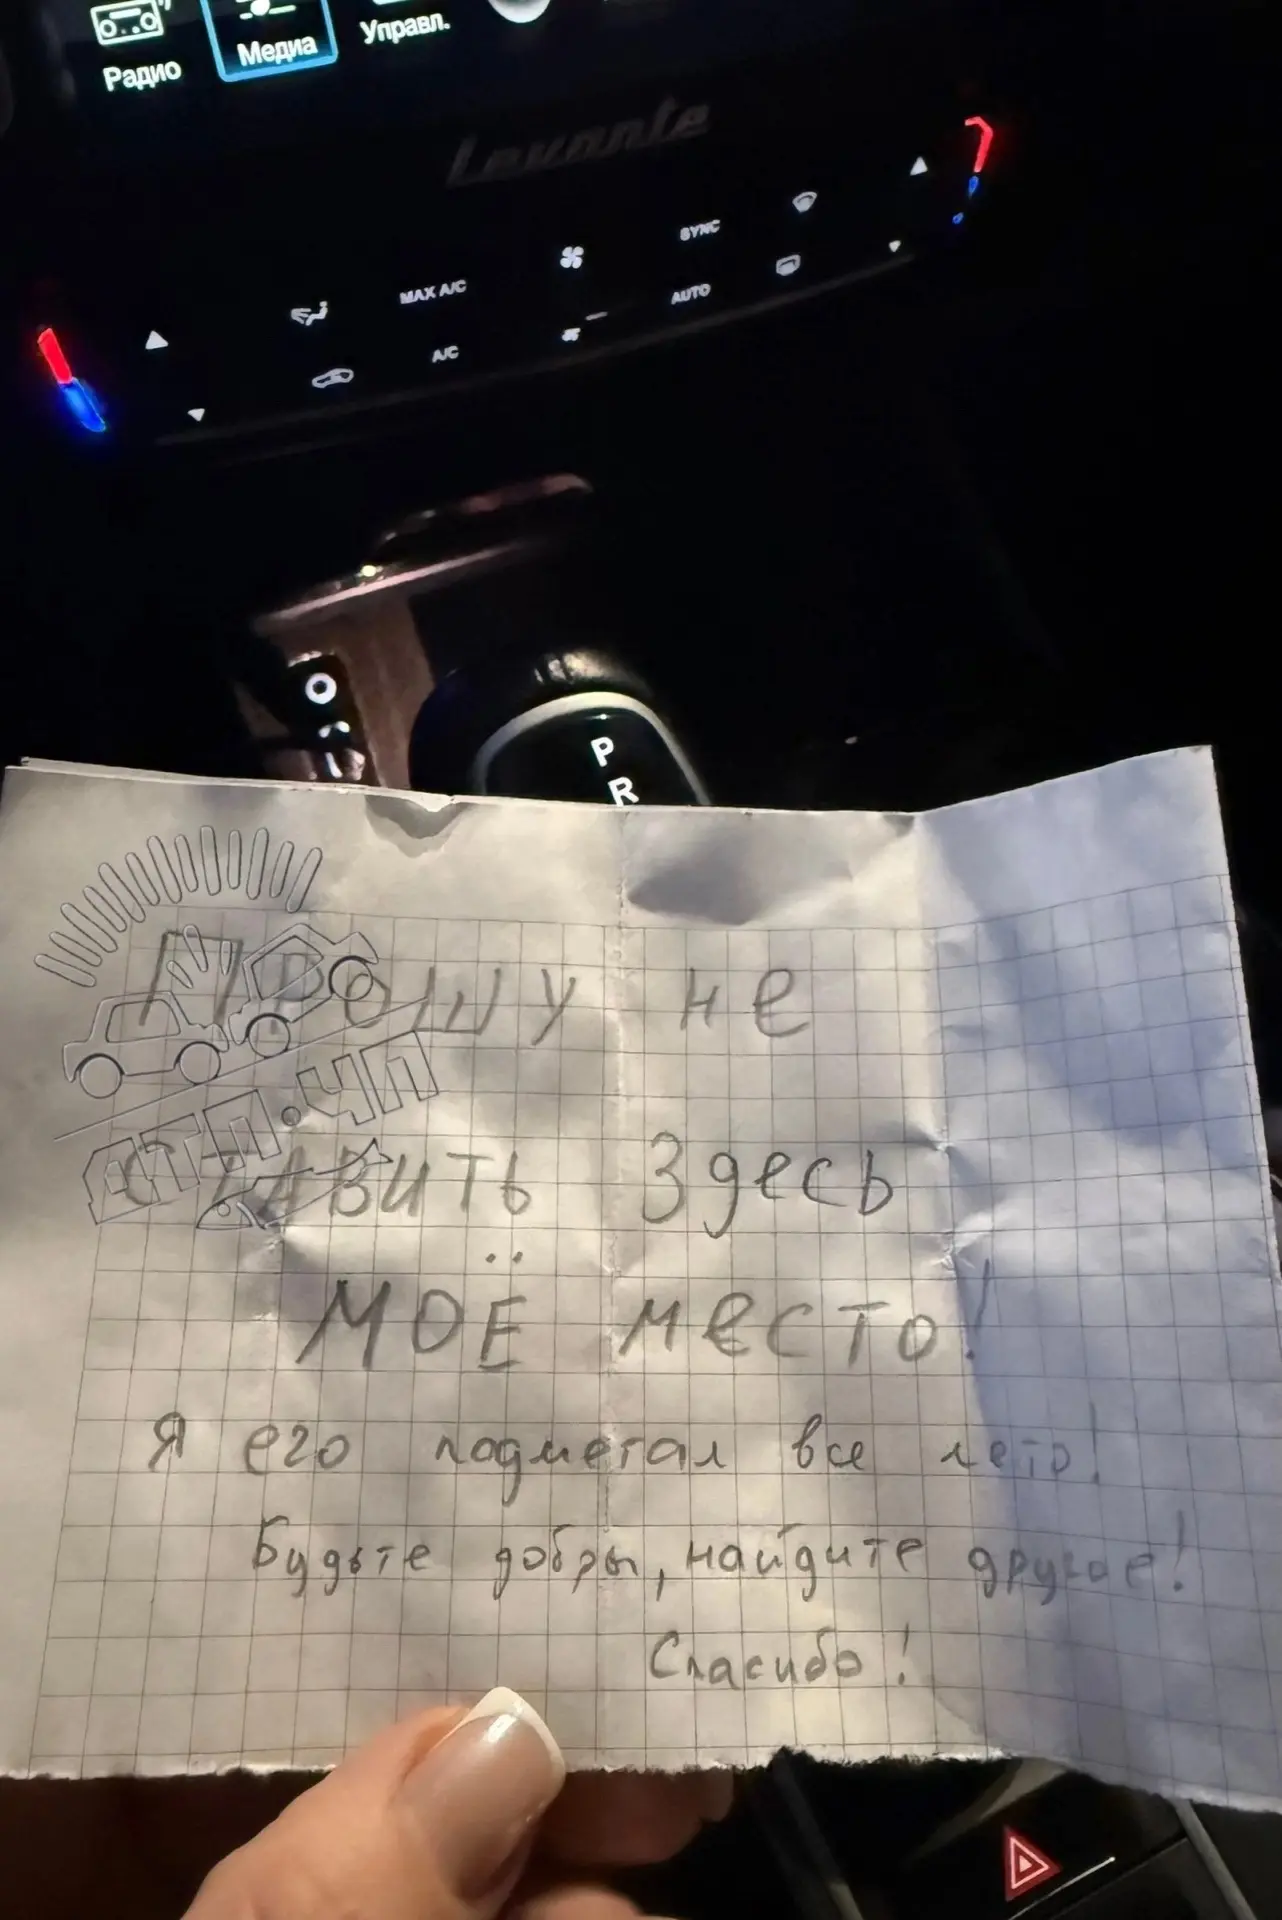 Радио
Медиа
Управл.
Levante
SYNC
MAX A/C
AUTO
A/C
P
R
Прошу не
ставить здесь
МОЁ место!
Я его подметал все лето!
Будьте добры, найдите другое!
Спасибо!
ДТП.ЧП